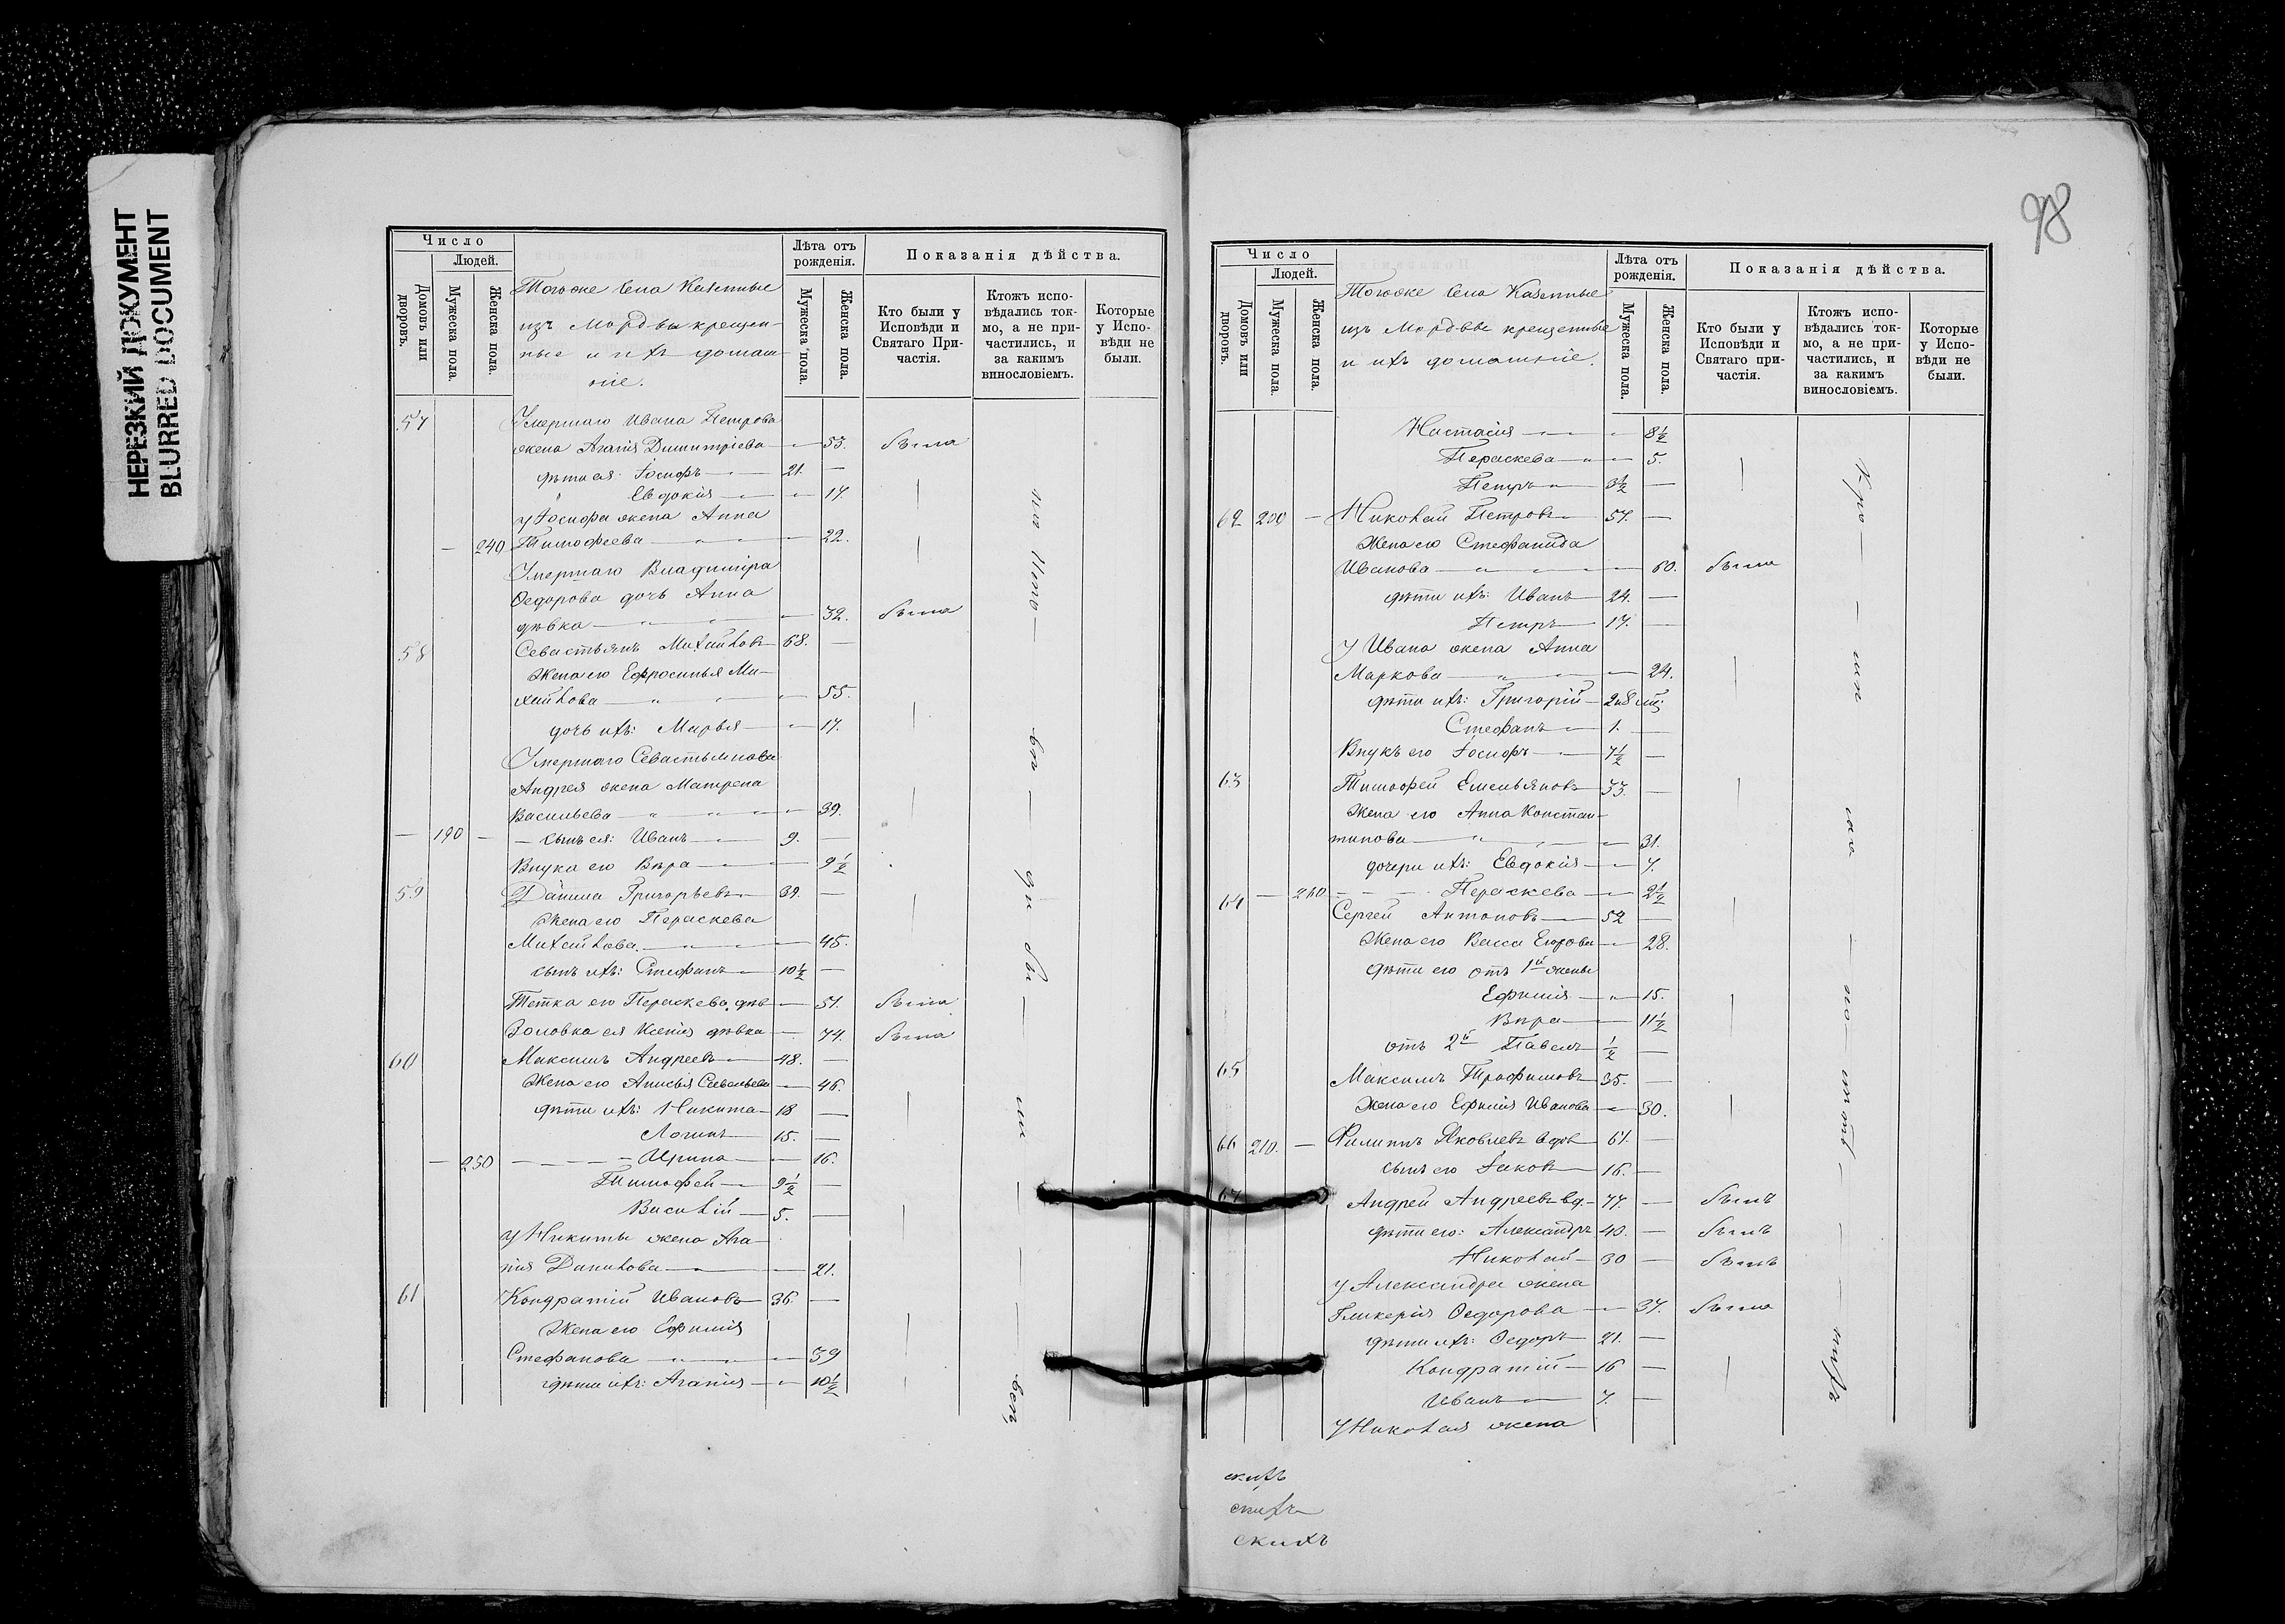 НЕРЕЗКИЙ ДОКУМЕНТ
BLURRED DOCUMENT
Число
Людей.
Домовъ или дворовъ.
Мужеска пола.
Женска пола.
Тогоже Села Казенные
изъ мордвы крещен-
ные и ихъ домаш-
ніе.
Лѣта отъ рожденія.
Мужеска пола.
Женска пола.
Показанія дѣйства.
Кто были у Исповѣди и Святаго При-
частія.
Ктожъ испо-
вѣдались ток-
мо, а не при-
частились, и
за какимъ
винословіемъ.
Которые
у Испо-
вѣди не
были.
57 Умершаго Ивана Петрова
жена Агапія Димитріева 53. была
дѣти ея: Іосифъ 21. —
" Евдокія 17.
у Іосифа жена Анна
— 240 Тимофеева 22.
Умершаго Владиміра
Ѳедорова дочь Анна
дѣвка 32. была
58 Севастьянъ Михайловъ 68. —
Жена его Ефросинья Ми-
хайлова 55.
дочь ихъ: Марья 17.
Умершаго Севастьянова
Андрея жена Матрена
Васильева 39.
— 190 — сынъ ея: Иванъ 9. —
Внука его Вѣра 9 1/2
59 Данила Григорьевъ 39. —
Жена его Параскева
Михайлова 45.
сынъ ихъ: Стефанъ 10 1/2 —
Тетка его Параскева дѣв 51. была
Золовка ея Ксенія дѣвка 74. была
60 Максимъ Андреевъ 48. —
Жена его Анисья Савельева 46.
дѣти ихъ: Никита 18 —
Логинъ 15. —
— 250 Ирина 16.
Тимофей 9 1/2 —
Василій 5. —
у Никиты жена Ага-
пія Данилова 21.
61 Кондратій Ивановъ 36. —
Жена его Ефимія
Стефанова 39
дѣти ихъ: Агапія 10 1/2
98
Число
Людей.
Домовъ или дворовъ.
Мужеска пола.
Женска пола.
Тогоже Села Казенные
изъ Мордвы крещенные
и ихъ домашніе.
Лѣта отъ рожденія.
Мужеска пола.
Женска пола.
Показанія дѣйства.
Кто были у
Исповѣди и
Святаго при-
частія.
Ктожъ испо-
вѣдались ток-
мо, а не при-
частились, и
за какимъ
винословіемъ.
Которые
у Испо-
вѣди не
были.
Настасія 8 1/2
Параскева 5.
Петръ 3 1/2 —
62 200 — Николай Петровъ 57. —
Жена его Стефанида
Иванова 60. была
дѣти ихъ: Иванъ 24. —
Петръ 17. —
у Ивана жена Анна
Маркова 24.
дѣти ихъ: Григорій
Стефанъ 1. —
Внукъ его Іосифъ 7 1/2 —
63 Тимофей Емельяновъ 33. —
Жена его Анна Констан-
тинова 31.
дочери ихъ: Евдокія 7.
— 260 Параскева 2 1/2
64 Сергей Антоновъ 52 —
Жена его Васса Егорова 28.
дѣти его отъ 1й жены
Ефимія 15.
Вѣра 11 1/2
отъ 2й Павелъ 1/2 —
65 Максимъ Трофимовъ 35. —
Жена его Ефимія Иванова 30.
66 210. — Филиппъ Яковлевъ вдов 61. —
сынъ его Іаковъ 16. —
67 Андрей Андреевъ вд. 77. — былъ
дѣти его: Александръ 43. — былъ
Николай 30 — былъ
у Александра жена
Гликерія Ѳедорова 37. была
дѣти ихъ: Ѳедоръ 21. —
Кондратій 16 —
Иванъ 7. —
У Николая жена
скихъ
скихъ
скихъ